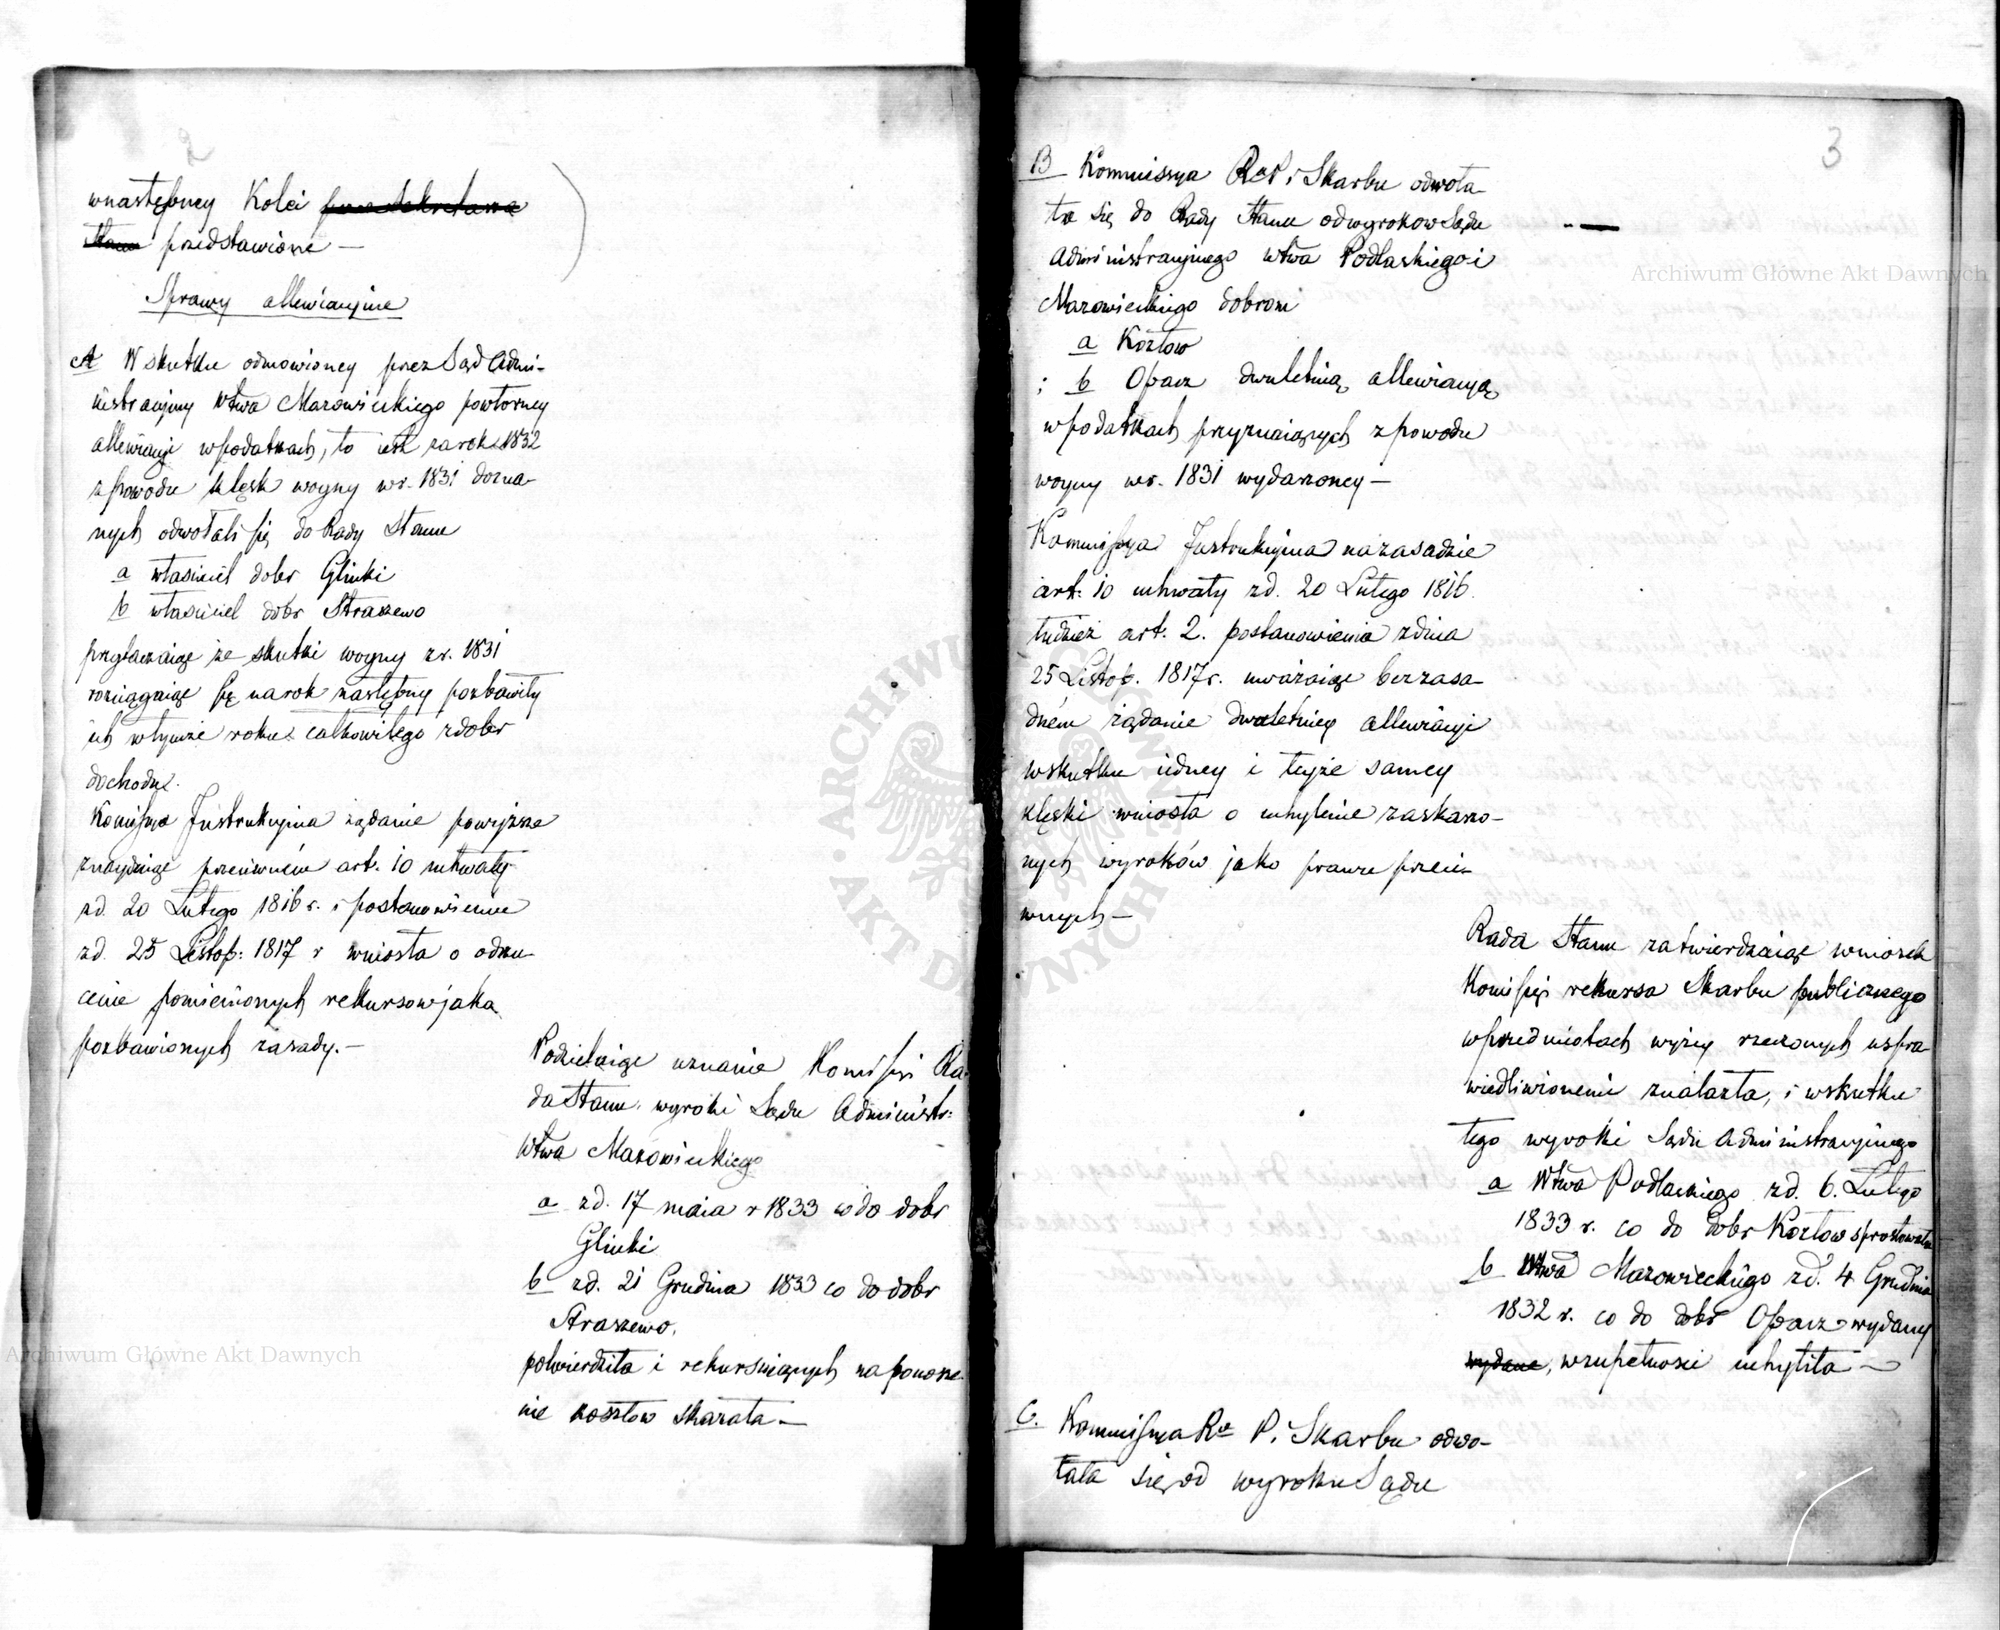 2
wnastępney Kolei przez Sekretarza
Stanu przedstawione —
Sprawy allewiacyjne
A W skutku odmowioney przez Sąd Admi-
nistracyjny Wtwa Mazowieckiego powtorney
allewiacji w podatkach, to iest za rok 1832
z powodu klęsk woyny w r. 1831 dozna-
nych odwołali się do Rady Stanu
a właściciel dobr Glinki
b właściciel dobr Straszewo
przytaczaiąc że skutki woyny z r. 1831
rozciągaiąc się na rok następny pozbawiły
ich w tymże roku całkowitego z dobr
dochodu.
Komissya Instrukcyina żądanie powyższe
znayduiąc przeciwném art. 10 uchwały
z d. 20 Lutego 1816 r. i postanowienia
z d. 25 Listop: 1817 r wniosła o odrzu-
cenie pomienionych rekursow jako
pozbawionych zasady. —
Podzielaiąc uznanie Komissyi Ra-
da Stanu wyroki Sądu Administr:
Wtwa Mazowieckiego
a z d. 17 maia r 1833 co do dobr
Glinki
b z d. 21 Grudnia 1833 co do dobr
Straszewo,
potwierdziła i rekursuiących na ponosze-
nie kosztow skazała —
3
B Kommissya R P i Skarbu odwoła-
ła się do Rady Stanu od wyrokow Sądu
Administracyjnego Wtwa Podlaskiego i
Mazowieckiego dobrom
a Kozłow
b Opacz dwuletnią allewiacyą
w podatkach przyznaiących z powodu
woyny w r. 1831 wydarzoney —
Kommissya Instrukcyina na zasadzie
art: 10 uchwały z d. 20 Lutego 1816
tudzież art. 2. postanowienia z dnia
25 Listop. 1817 r. uważaiąc bezzasa-
dném żądanie dwuletniey allewiacyi
w skutku iedney i teyże samey
klęski wniosła o uchylenie zaskarżo-
nych wyroków jako prawu przeci-
wnych —
Rada Stanu zatwierdzaiąc wniosek
Komissyi rekursa Skarbu publicznego
w przedmiotach wyżey rzeczonych uspra-
wiedliwionemi znalazła, i w skutku
tego wyroki Sądu Administracyjnego
a Wtwa Podlaskiego z d. 6. Lutego
1833 r. co do dobr Kozłow sprostowała
b Wtwa Mazowieckiego z d. 4 Grudnia
1832 r. co do dobr Opacz wydany
wydane, w zupełności uchyliła —
C. Kommissya R P. i Skarbu odwo-
łała się od wyroku Sądu
Archiwum Główne Akt Dawnych
Archiwum Główne Akt Dawnych
ARCHIWUM GŁÓWNE AKT DAWNYCH